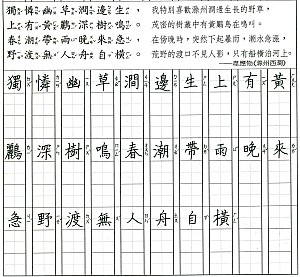 獨憐幽草澗邊生，
上有黃鸝深樹鳴。
春潮帶雨晚來急，
野渡無人舟自橫。
我特別喜歡滁州澗邊生長的野草，
茂密的樹叢中有黃鸝鳥在鳴叫。
在傍晚時，突然下起暴雨，潮水急漲，
荒野的渡口不見人影，只有船橫泊河上。
—韋應物(滁州西澗)
獨憐幽草澗邊生上有黃
鸝深樹鳴春潮帶雨晚來
急野渡無人舟自橫